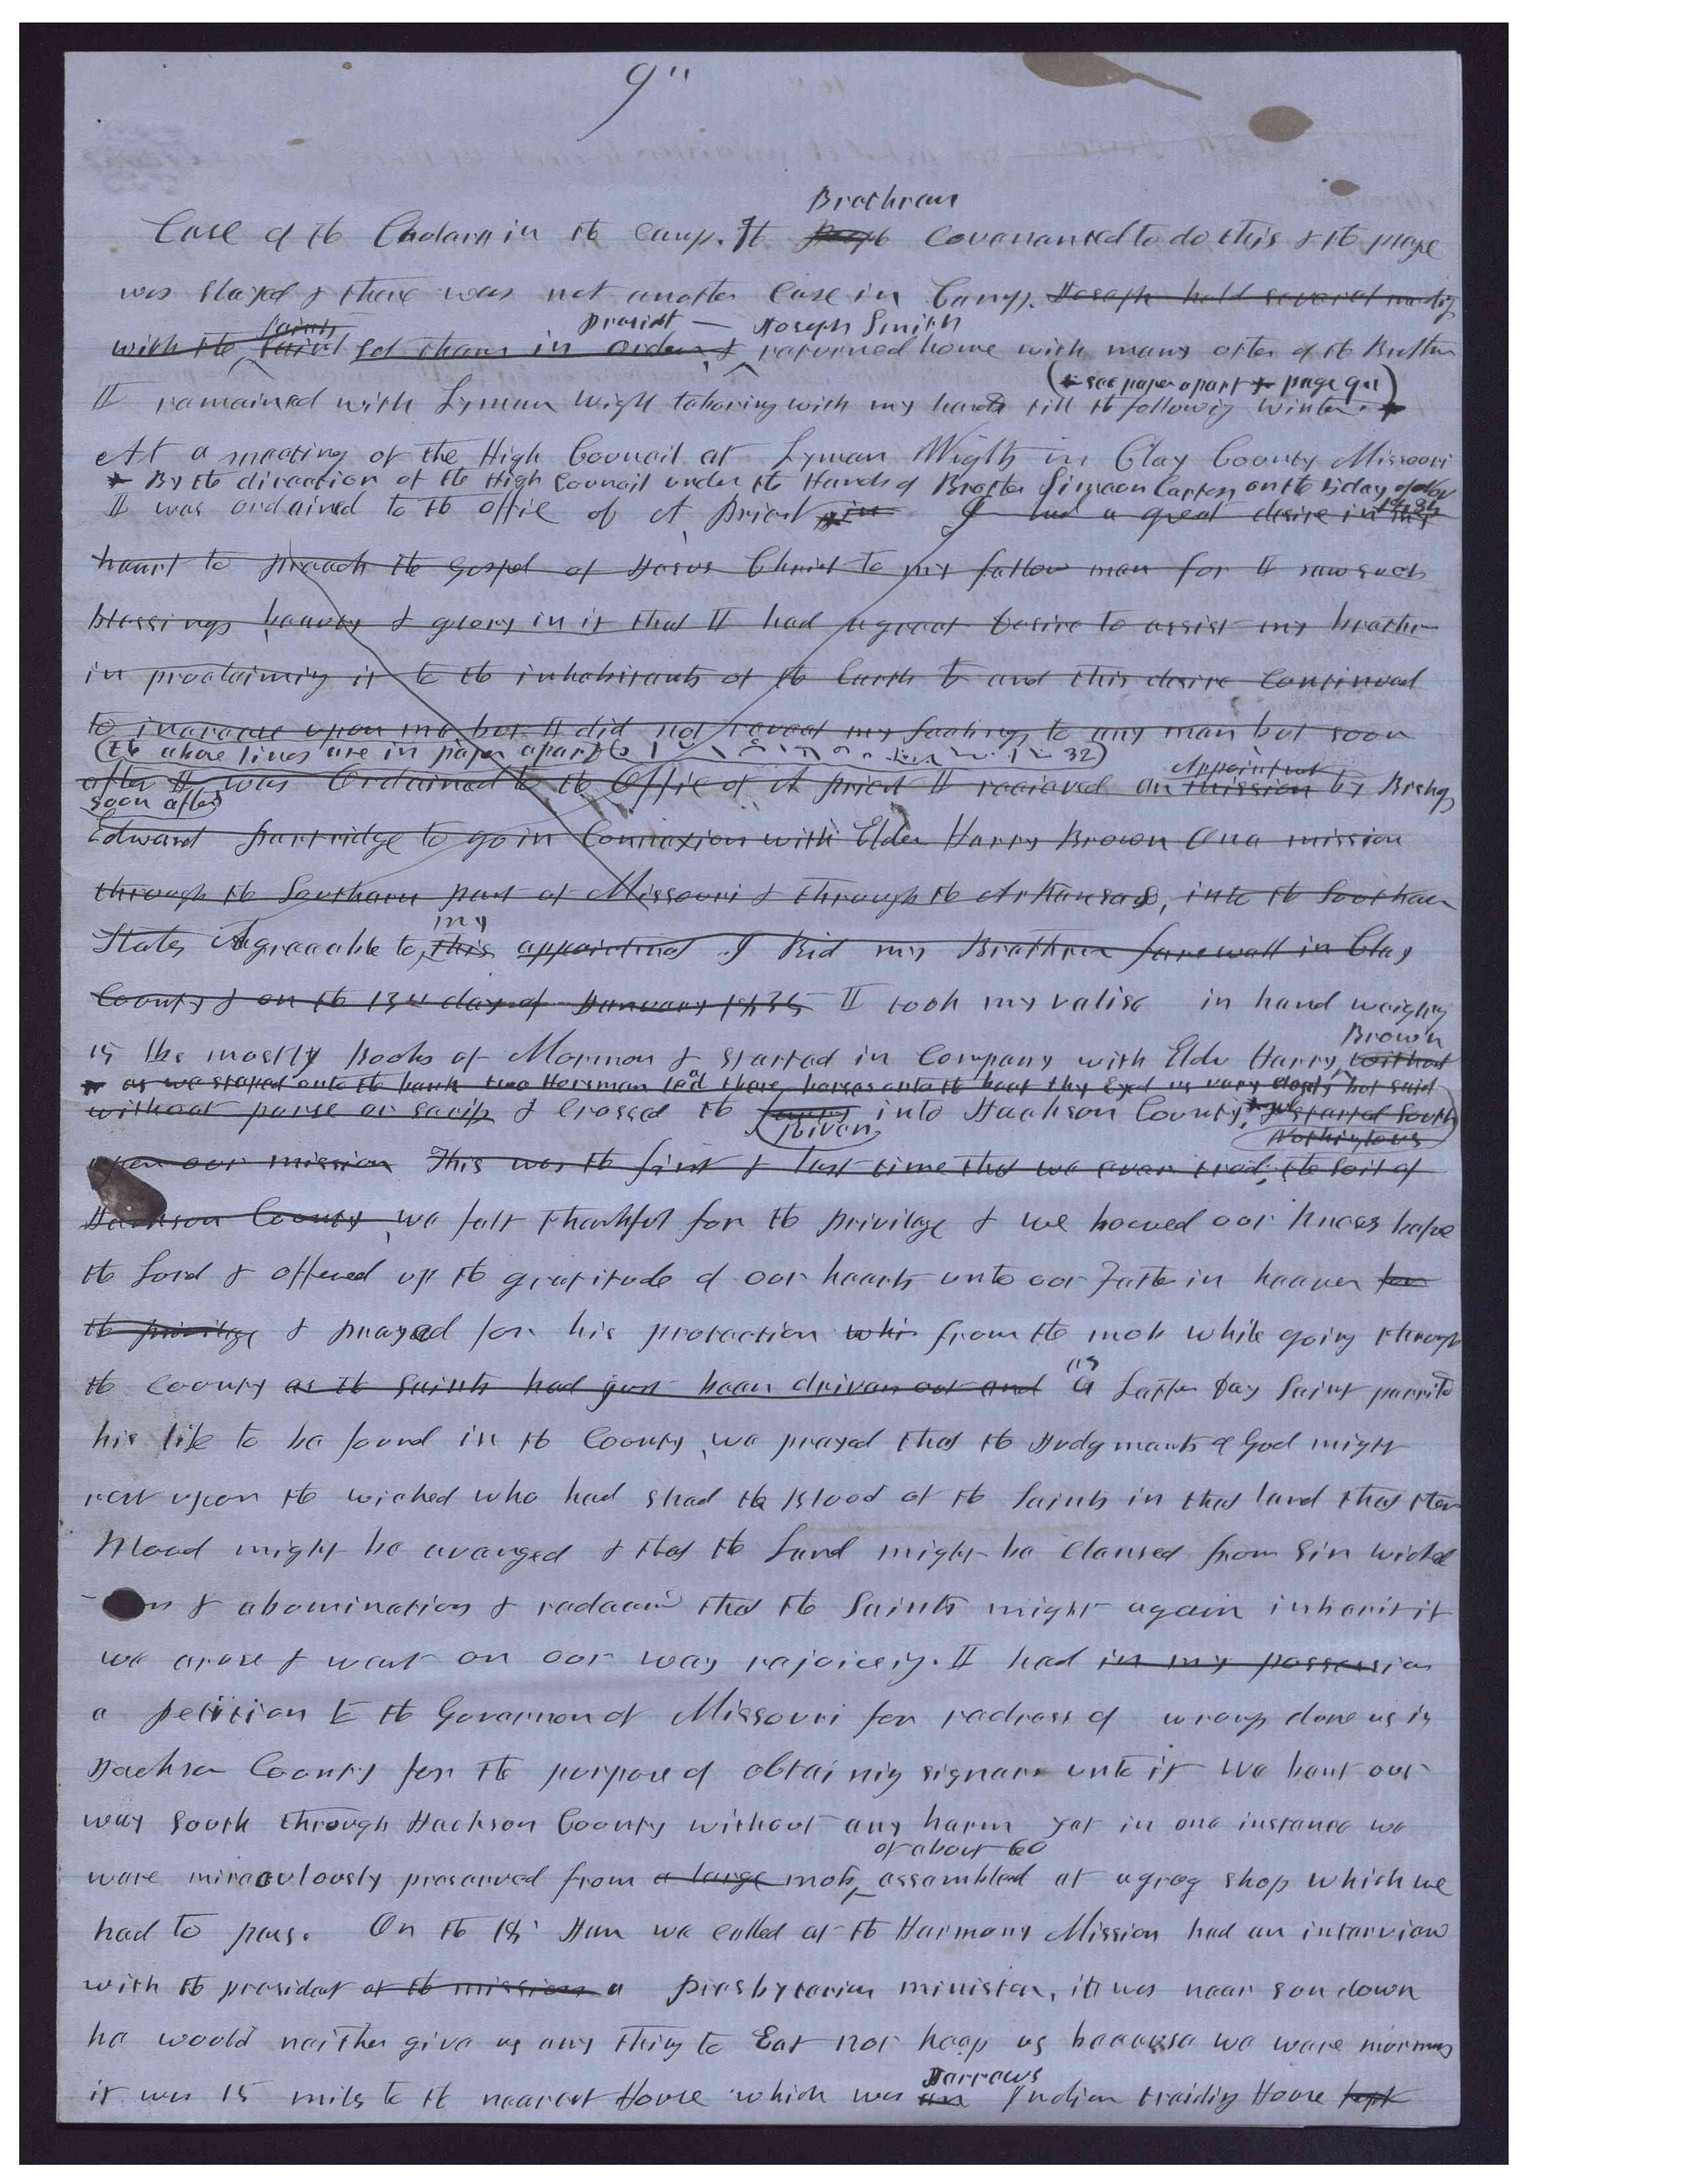 9"
Brethren
Case of the Cholera in the camp. The People Covenanted to do this & the plage
was stayed & there was not another Case in Camp. Joseph held several meeting
Saints Presidt — Joseph Smith
with the Saint set them in order & returned home with many other of the Brethren
(* see paper apart * page 9")
I remained with Lyman Wight laboring with my hands till the followig winter. *
At a meeting of the High Council at Lyman Wigths in Clay County Missouri
* By the direction of the High Council under the Hands of Brother Simeon Carter on the 5 day of Nov
1834
I was ordained to the office of A Priest I had a great desire in my
heart to preach the Gospel of Jesus Christ to my fellow men for I saw such
blessings beauty & glory in it that I had a great desire to assist my brethr
in proclaimig it to the inhabitants of the Earth & and this desire continued
to increase upon me but I did not reveal my feelings to any man but soon
(the above lines are in paper apart 32)
Appointmt
after I was Ordained to the Office of A priest I recieved an mission by Bishop
soon after
Edward Partridge to go in Connexion with Elder Harry Brown On a mission
through the Southern part of Missouri & through the Arkansas, into the Southern
my
States Agreeable to this appointmet I Bid my Brethren farewell in Clay
County & on the 13th day of January 1835 I took my valise in hand weighig
Brown
15 lbs mostly Books of Mormon & started in Company with Elder Harry, without
* as we stayed onto the bank two Horsman lead there horses onto the boat thy Eyed us very closely but said
without purse or scrip & Crossed the ferry into Jackson County, & we started South
River Nothing to us
upon our mission This was the first & last time that we ever trod the soil of
Jackson County we felt thankful for the privilege & we bowed our knees before
the Lord & offered up the gratitude of our hearts unto our Father in heaven for
the privilege & prayed for his protection whi from the mob while going through
as
the County as the Saints had just been driven out and a Latter Day Saint perrild
his life to be found in the County, we prayed that the Judgments of God might
rest upon the wicked who had shed the Blood of the Saints in that land that ther
blood might be avenged & that the Land might be clensed from sin wicked
-ns & abomination & redeemd that the Saints might again inherit it
we arose & went on our way rejoiceig. I had in my possession
a petition to the Governor of Missouri for redress of wrongs done us in
Jackson County for the purpose of obtainig signers unto it We bent our
way South through Jackson County without any harm yet in one instance we
of about 60
ware miraculously preserved from a large mob, assembled at a grog shop which we
had to pass. On the 18' Jan we called at the Harmony Mission had an interview
with the president of the mission a presbyterian minister, it was near sun down
he would neither give us any thing to Eat nor keep us because we ware mormons
Jerrews
it was 15 mils to the nearest House which was an Indian traidig House kept